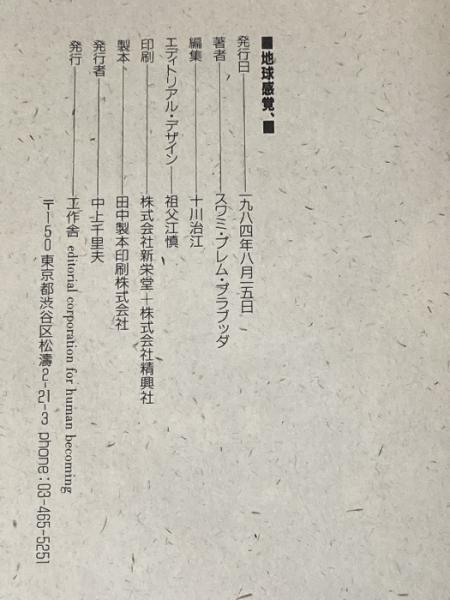 ■地球感覚、■
発行日――一九八四年八月一五日
著者――スワミ・プレム・プラブッダ
編集――十川治江
エディトリアル・デザイン――祖父江慎
印刷――株式会社新栄堂＋株式会社精興社
製本――田中製本印刷株式会社
発行者――中上千里夫
発行――工作舎 editorial corporation for human becoming
〒150 東京都渋谷区松濤2-21-3 phone:03-465-5251